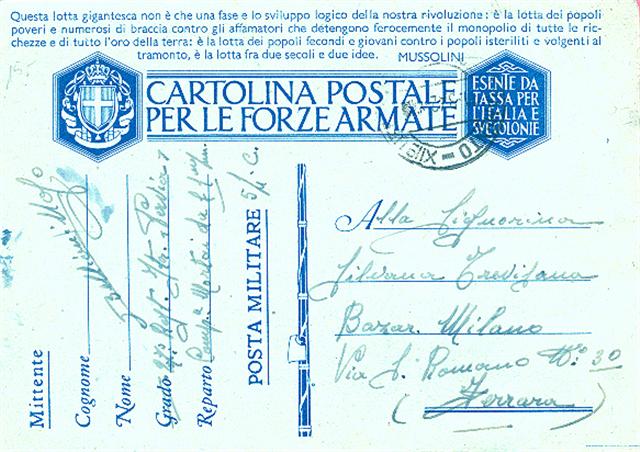 Questa lotta gigantesca non è che una fase e lo sviluppo logico della nostra rivoluzione: è la lotta dei popoli
poveri e numerosi di braccia contro gli affamatori che detengono ferocemente il monopolio di tutte le ric-
chezze e di tutto l'oro della terra: è la lotta dei popoli fecondi e giovani contro i popoli isteriliti e volgenti al
tramonto, è la lotta fra due secoli e due idee. MUSSOLINI
15.-
CARTOLINA POSTALE
PER LE FORZE ARMATE
ESENTE DA
TASSA PER
L'ITALIA E
SUE COLONIE
Mittente
Cognome
Nome
Grado
Reparto
POSTA MILITARE
Alla Signorina
Silvana Trevisana
Bazar Milano
Via S. Romano N° 30
(Ferrara)